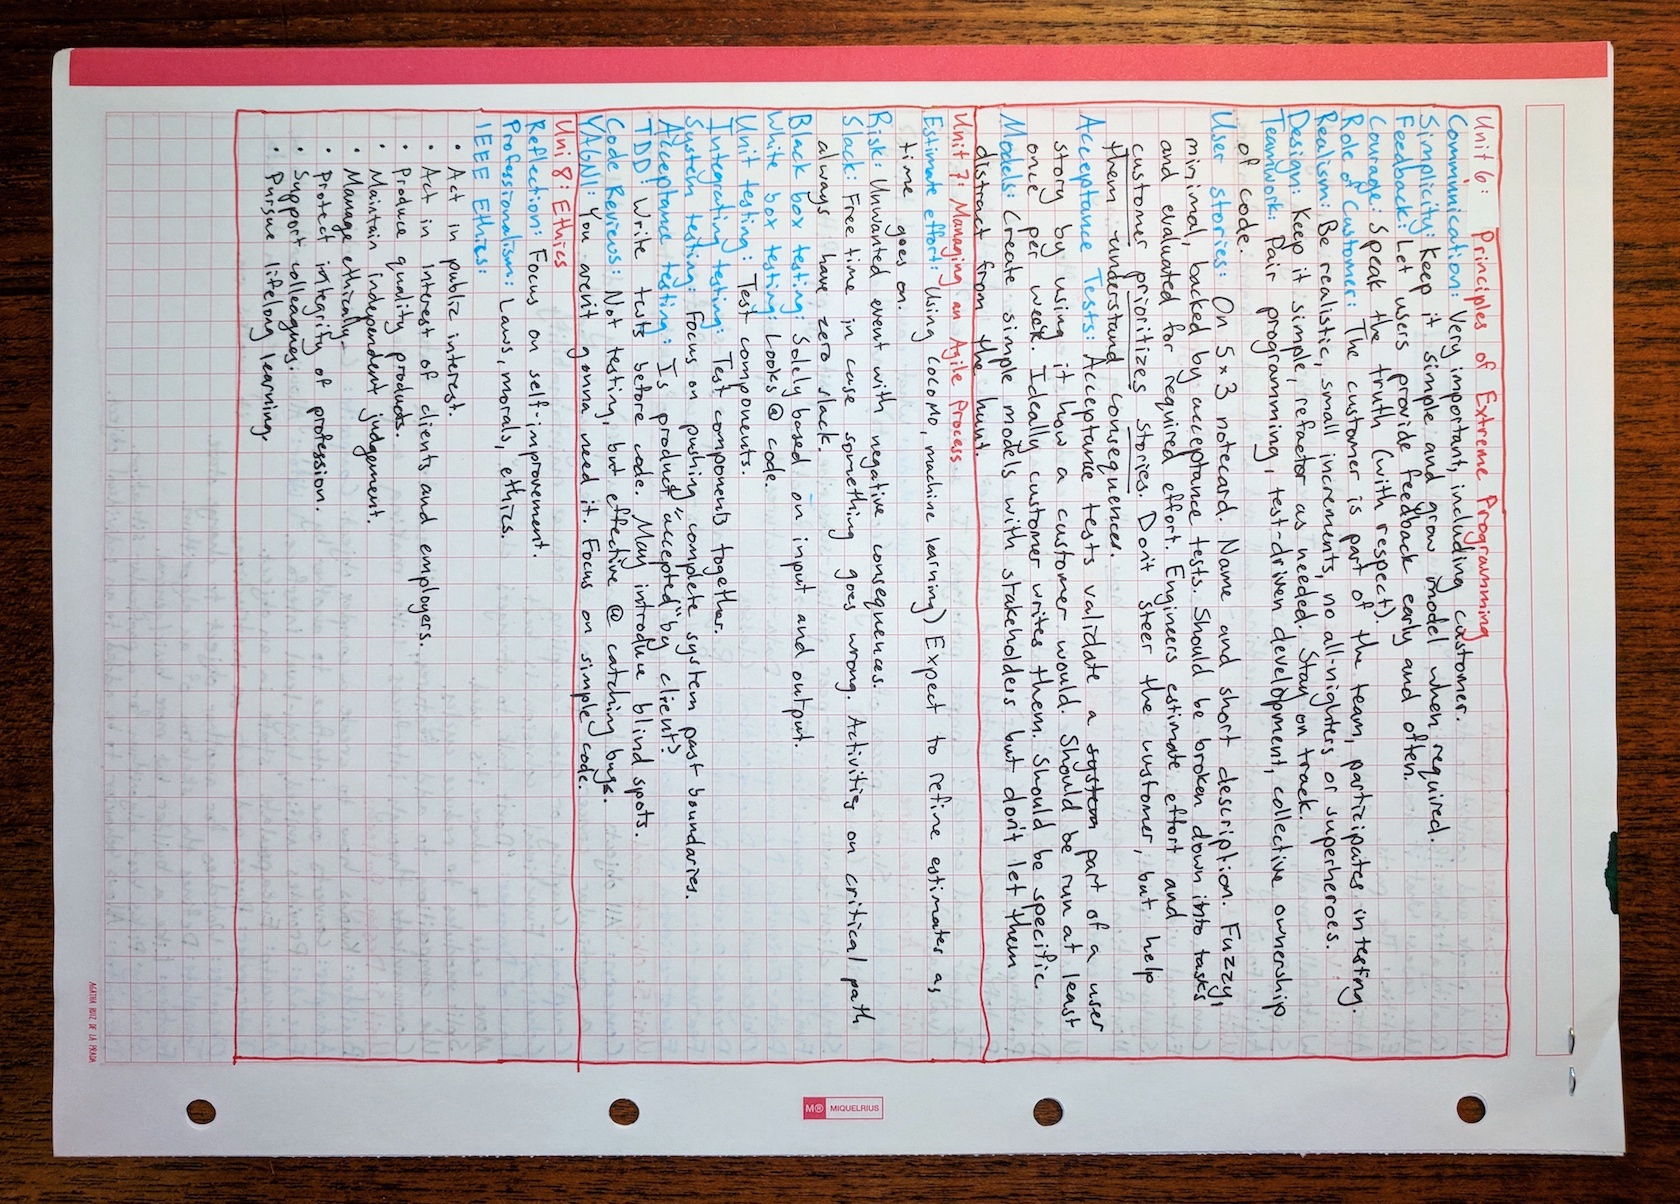 Unit 6: Principles of Extreme Programming
Communication: Very important, including customer.
Simplicity: Keep it simple and grow model when required.
Feedback: Let users provide feedback early and often.
Courage: Speak the truth (with respect).
Role of Customer: The customer is part of the team, participates in testing.
Realism: Be realistic, small increments, no all-nighters or superheroes.
Design: Keep it simple, refactor as needed. Stay on track.
Teamwork: Pair programming, test-driven development, collective ownership
of code.
User stories: On 5x3 notecard. Name and short description. Fuzzy,
minimal, backed by acceptance tests. Should be broken down into tasks
and evaluated for required effort. Engineers estimate effort and
customer prioritizes stories. Don't steer the customer, but help
them understand consequences.
Acceptance Tests: Acceptance tests validate a system part of a user
story by using it how a customer would. Should be run at least
once per week. Ideally customer writes them. Should be specific.
Models: Create simple models with stakeholders but don't let them
distract from the hunt.
Unit 7: Managing an Agile Process
Estimate effort: Using COCOMO, machine learning) Expect to refine estimates as
time goes on.
Risk: Unwanted event with negative consequences.
Slack: Free time in case something goes wrong. Activities on critical path
always have zero slack.
Black box testing: Solely based on input and output.
White box testing: Looks @ code.
Unit testing: Test components.
Integrating testing: Test components together.
System testing: Focus on pushing complete system past boundaries.
Acceptance testing: Is product "accepted" by client?
TDD: Write tests before code. May introduce blind spots.
Code Reviews: Not testing, but effective @ catching bugs.
YAGNI: You aren't gonna need it. Focus on simple code.
Uni 8: Ethics
Reflection: Focus on self-improvement.
Professionalism: Laws, morals, ethics.
IEEE Ethics:
• Act in public interest.
• Act in interest of clients and employers.
• Produce quality products.
• Maintain independent judgement.
• Manage ethically.
• Protect integrity of profession.
• Support colleagues.
• Pursue lifelong learning.
M® MIQUELRIUS
AGATHA RUIZ DE LA PRADA